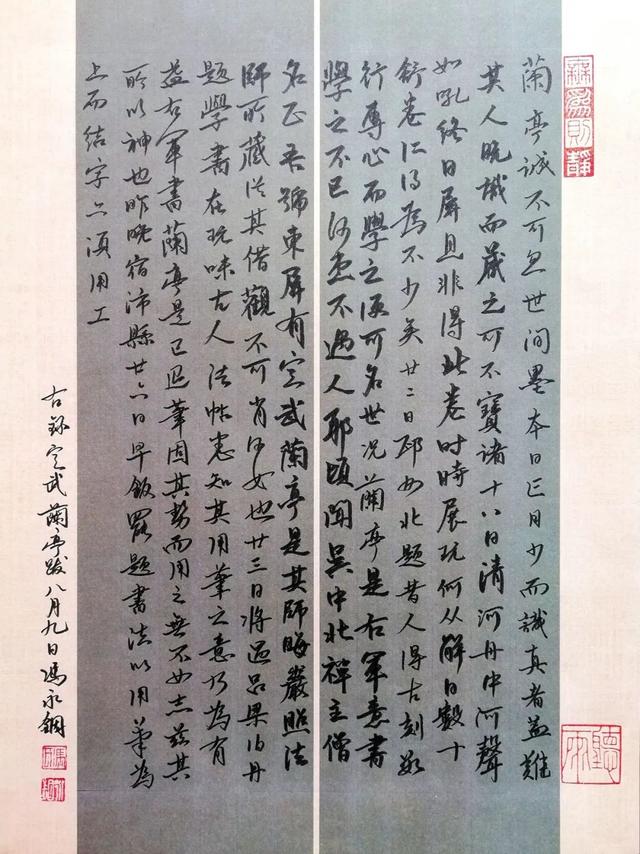 無為則靜
蘭亭誠不可忽世間墨本日亡日少而識真者益難
其人既識而藏之可不寶諸十八日清河舟中河聲
如吼終日屏息非得此卷時時展玩何以解日數十
舒卷所得為不少矣廿二日邳州北題昔人得古刻數
行專心而學之便可名世況蘭亭是右軍意書
學之不已何患不過人耶頃聞吳中北禪主僧
名正吾號東屏有定武蘭亭是其師晦巖照法
師所藏從其借觀不可肯何如也廿三日將過呂梁泊舟
題學書在玩味古人法帖悉知其用筆之意乃為有
益右軍書蘭亭是已退筆因其勢而用之無不如志茲其
所以神也昨晚宿沛縣廿六日早飯罷題書法以用筆為
上而結字亦須用工
右錄定武蘭亭跋八月九日馮永鋼
聽雨